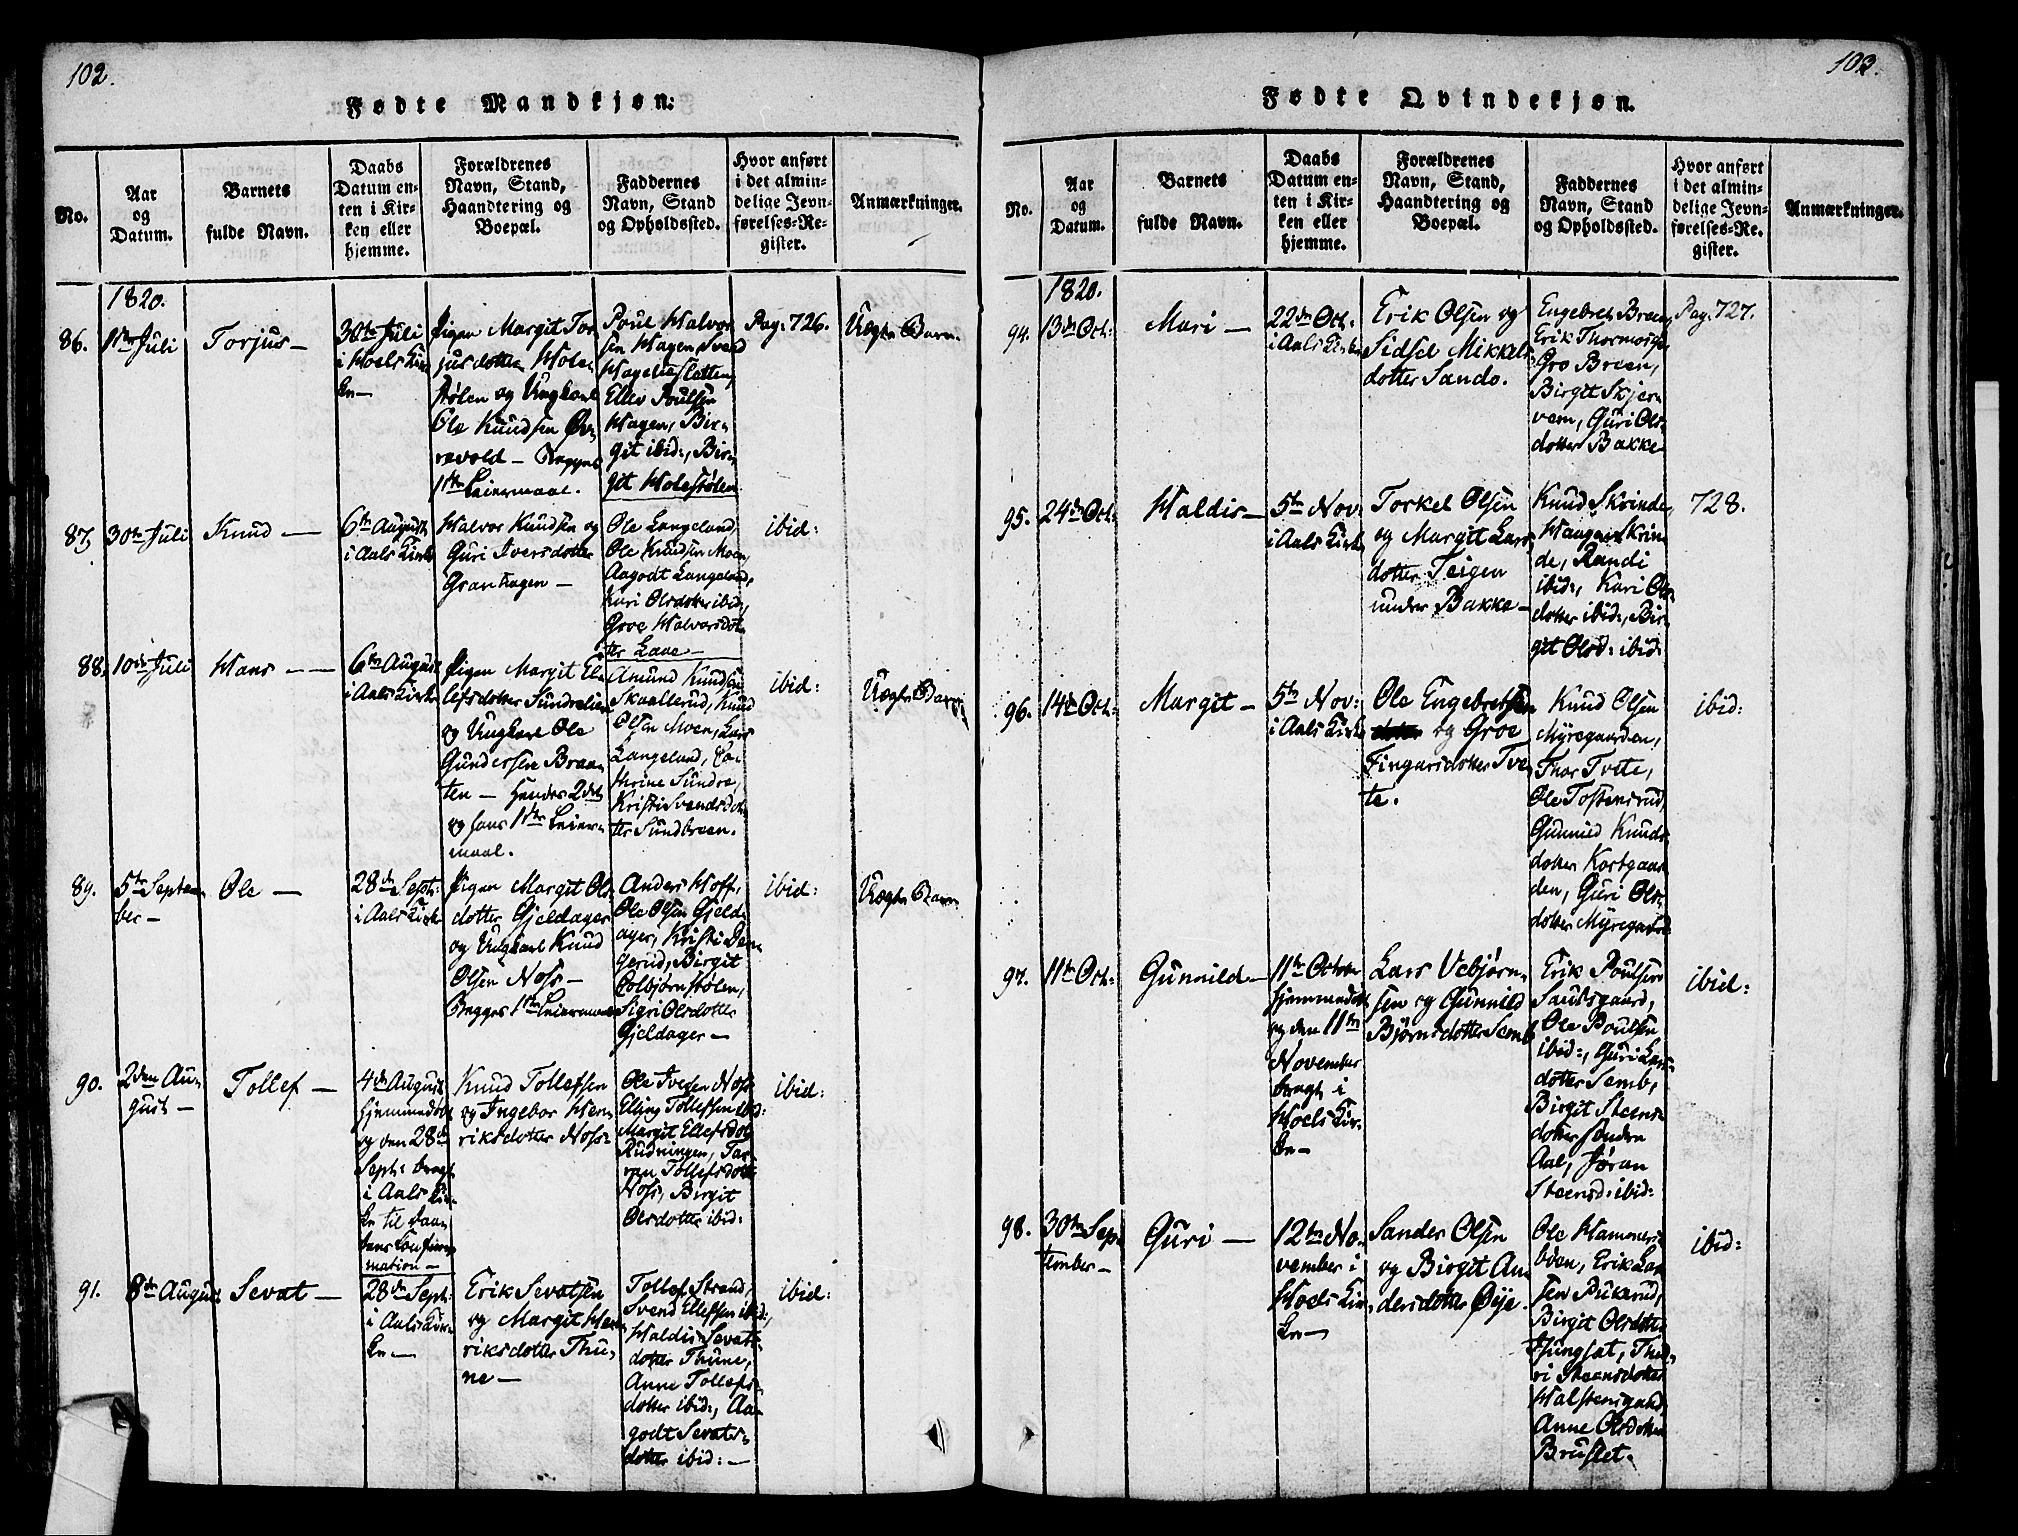 102.
Fødte Mandkjøn:
No.
Aar
og
Datum.
Barnets
fulde Navn.
Daabs
Datum en-
ten i Kir-
ken eller
hjemme.
Forældrenes
Navn, Stand,
Haandtering og
Boepæl.
Faddernes
Navn, Stand
og Opholdssted.
Hvor anført
i det almin-
delige Jevn-
førelses-Re-
gister.
Anmærkninger.
1820.
86.
11te Juli
Torjus —
30te Juli
i Hoels Kir
ke —
Pigen Margit Tor
jusdotter Hole
stølen og Ungkarl
Ole Knudsen Øv
revold — Begges
1ste Leiermaal.
Poul Halvor
sen Hagen, Svend
Hagehesletten,
Ellev Poulsen
Hagen, Bir-
git ibid:, Bir-
git Holestølen
Pag: 726.
Uægte Barn.
87.
30te Juli
Knud —
6te August
i Aals Kirke
Halvor Knudsen og
Guri Iversdotter
Granhagen —
Ole Langeland,
Ole Knudsen Moen,
Aagodt Langeland,
Kari Olsdotter ibid,
Groe Halvorsdot
ter Laae —
ibid:
88.
10de Juli
Hans —
6te August
i Aals Kirke
Pigen Margit El-
lefsdotter Sundrelien
og Ungkarl Ole
Gundersen Braa-
ten — Hendes 2det
og hans 1ste Leier-
maal.
Amund Knudsen
Skaallerud, Knud
Olsen Moen, Lars
Langeland, Ca-
thrine Sundre,
Kristi Svendsdot
ter Sundbreen.
ibid:
Uægte Barn
89.
5te Septem
ber —
Ole —
28de Sept:
i Aals Kirke
Pigen Margit Ols
dotter Gjeldager
og Ungkarl Knud
Olsen Noss —
Begges 1ste Leiermaal
Anders Hoff,
Ole Olsen Gjeld-
ager, Kristi Den
gerud, Birgit
Colbjørnstølen,
Sigri Olsdotter
Gjeldager —
ibid:
Uægte Barn
90.
2den Au-
gust —
Tollef —
4de August
hjemmedøbt
og den 28de
Sept: bragt
i Aals Kir-
ke til Daa-
bens Confir-
mation —
Knud Tollefsen
og Ingebor Hen
riksdotter Noss
Ole Iversen Noss
Elling Tollefsen ibid:
Margit Ellefsdot
Rudningen, Tar
ran Tollefsdotter
Noss, Birgit
Olsdotter ibid:
ibid:
91.
8de August
Sevat —
28de Sept:
i Aals Kir-
ke —
Erik Sevatsen
og Margit Hen
riksdotter Thu-
ne —
Tollef Strand,
Svend Ellefsen ibid:,
Haldis Sevats
dotter Thune,
Anne Tollefs-
dotter ibid:, Aa-
godt Sevats-
dotter ibid: —
ibid:
103.
Fødte Qvindekjøn.
No.
Aar
og
Datum.
Barnets
fulde Navn.
Daabs
Datum en-
ten i Kir-
ken eller
hjemme.
Forældrenes
Navn, Stand,
Haandtering og
Boepæl.
Faddernes
Navn, Stand
og Opholdssted.
Hvor anført
i det almin-
delige Jevn-
førelses-Re-
gister.
Anmærkninger.
1820.
94.
13de Oct:
Mari —
22de Oct:
i Aals Kirke
Erik Olsen og
Sidsel Mikkels
dotter Sando.
Engebret Breen,
Erik Thormosg:
Gro Breen,
Birgit Skjer-
vem, Guri Ols
dotter Bakke
Pag: 727.
95.
24de Oct:
Haldis —
5te Nov:
i Aals Kirke
Torkel Olsen
og Margit Lars
dotter Teigen
under Bakke —
Knud Skrinde,
Haagen Skrin
de, Randi
ibid:, Kari Ols
dotter ibid:, Bir-
git Olsd: ibid:
728.
96.
14de Oct:
Margit —
5te Nov:
i Aals Kirke
Ole Engebretsen
og Groe
Fingarsdotter Tve
te.
Knud Olsen
Myregaarden,
Thor Tvete,
Ole Tostensrud,
Gunnild Knuds
dotter Kortgaar
den, Guri Ols-
dotter Myregaard
ibid:
97.
11te Oct:
Gunnild —
11te October
hjemmedøbt
og den 11te
November
bragt i
Hoels Kir-
ke —
Lars Vebjørn-
sen og Gunnild
Bjørnsdotter Semb
Erik Poulsen
Sautsgaard,
Ole Poulsen
ibid:, Guri Lars-
dotter Semb,
Birgit Steens
dotter søndre
Aal, Jøran
Steensd: ibid:
ibid:
98.
30te Sep
tember —
Guri —
12te No-
vember i
Hoels Kir-
ke —
Sander Olsen
og Birgit An
dersdotter Øye.
Ole Hammers-
bøen, Erik Lar
sen Pukerud,
Birgit Olsdotter
Tjungsat, Thu-
ri Steensdotter
Halstensgaard,
Anne Olsdotter
Bruslet.
ibid: